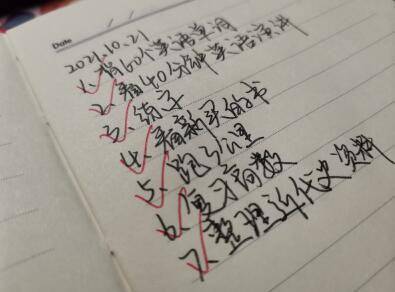 Date / /
2021.10.21
1、背60个英语单词
2、看40分钟英语演讲
3、练字
4、看新买的书
5、跑3公里
6、复习高数
7、整理近代史资料